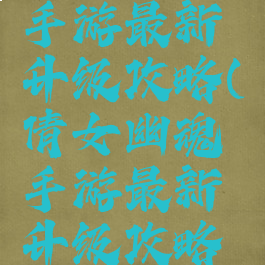 手游最新
升级攻略(
倩女幽魂
手游最新
升级攻略